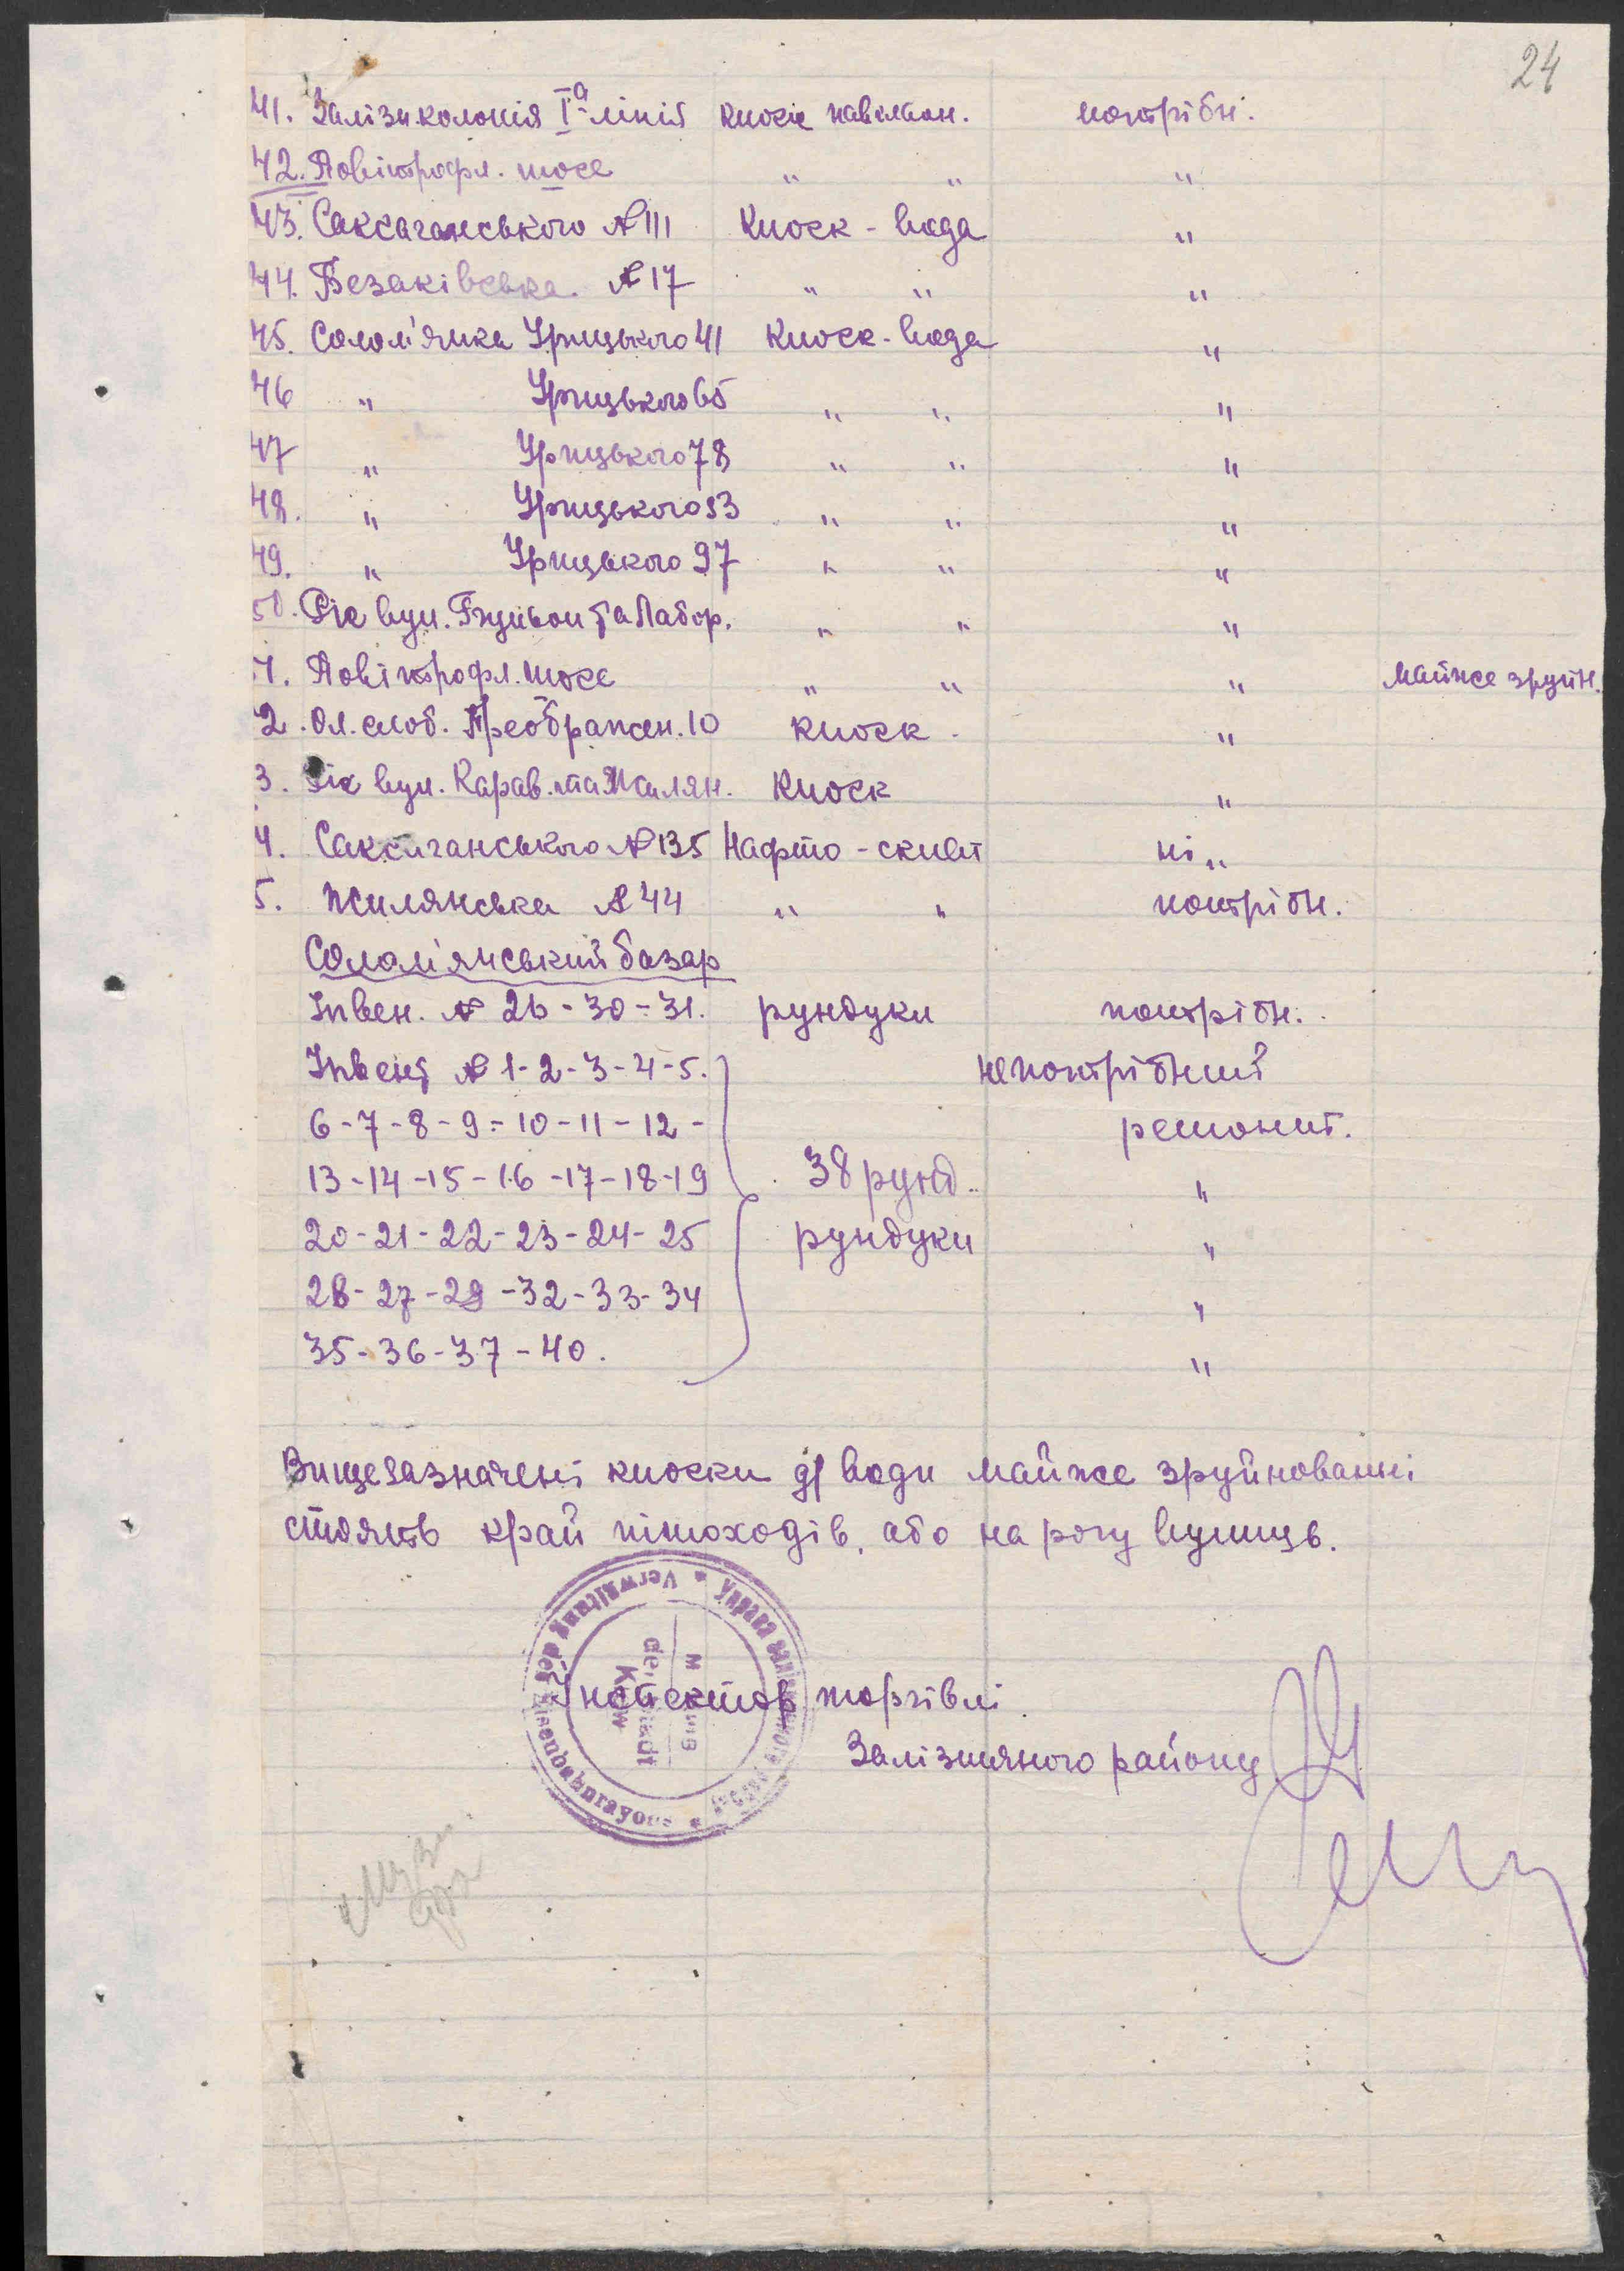 24
41. Залізн. колонія Iа лінія Киоск павільйон. потрібн.
42. Повітрофл. шосе " " "
43. Саксаганського № 111 Киоск - вода "
44. Безаківська № 17 " " "
45. Солом'янка Урицького 41 Киоск - вода "
46 " Урицького 65 " " "
47 " Урицького 78 " " "
48. " Урицького 93 " " "
49. " Урицького 97 " " "
50. Ріг вул. та Лабор. " " "
1. Повітрофл. шосе " " " майже зруйн.
2. Ол. слоб. Преображен. 10 киоск - "
3. Ріг вул. Карав. та Жилян. Киоск "
4. Саксаганського № 135 Нафто - склад ні "
5. Жилянська № 44 " " потрібн.
Солом'янський базар
Інвен. № 26 - 30 - 31. рундуки потрібн.
Інвент № 1 - 2 - 3 - 4 - 5. непотрібний
6 - 7 - 8 - 9 - 10 - 11 - 12 - ремонт.
13 - 14 - 15 - 16 - 17 - 18 - 19 38 рунд. "
20 - 21 - 22 - 23 - 24 - 25 рундуки "
28 - 27 - 29 - 32 - 33 - 34 "
35 - 36 - 37 - 40. "
Вищезазначені киоски дл води майже зруйнованні
стоять край пішоходів, або на рогу вулиць.
Verwaltung des Eisenbahnrayons
der Stadt
Kiew
Інспектор торгівлі
Залізничного району